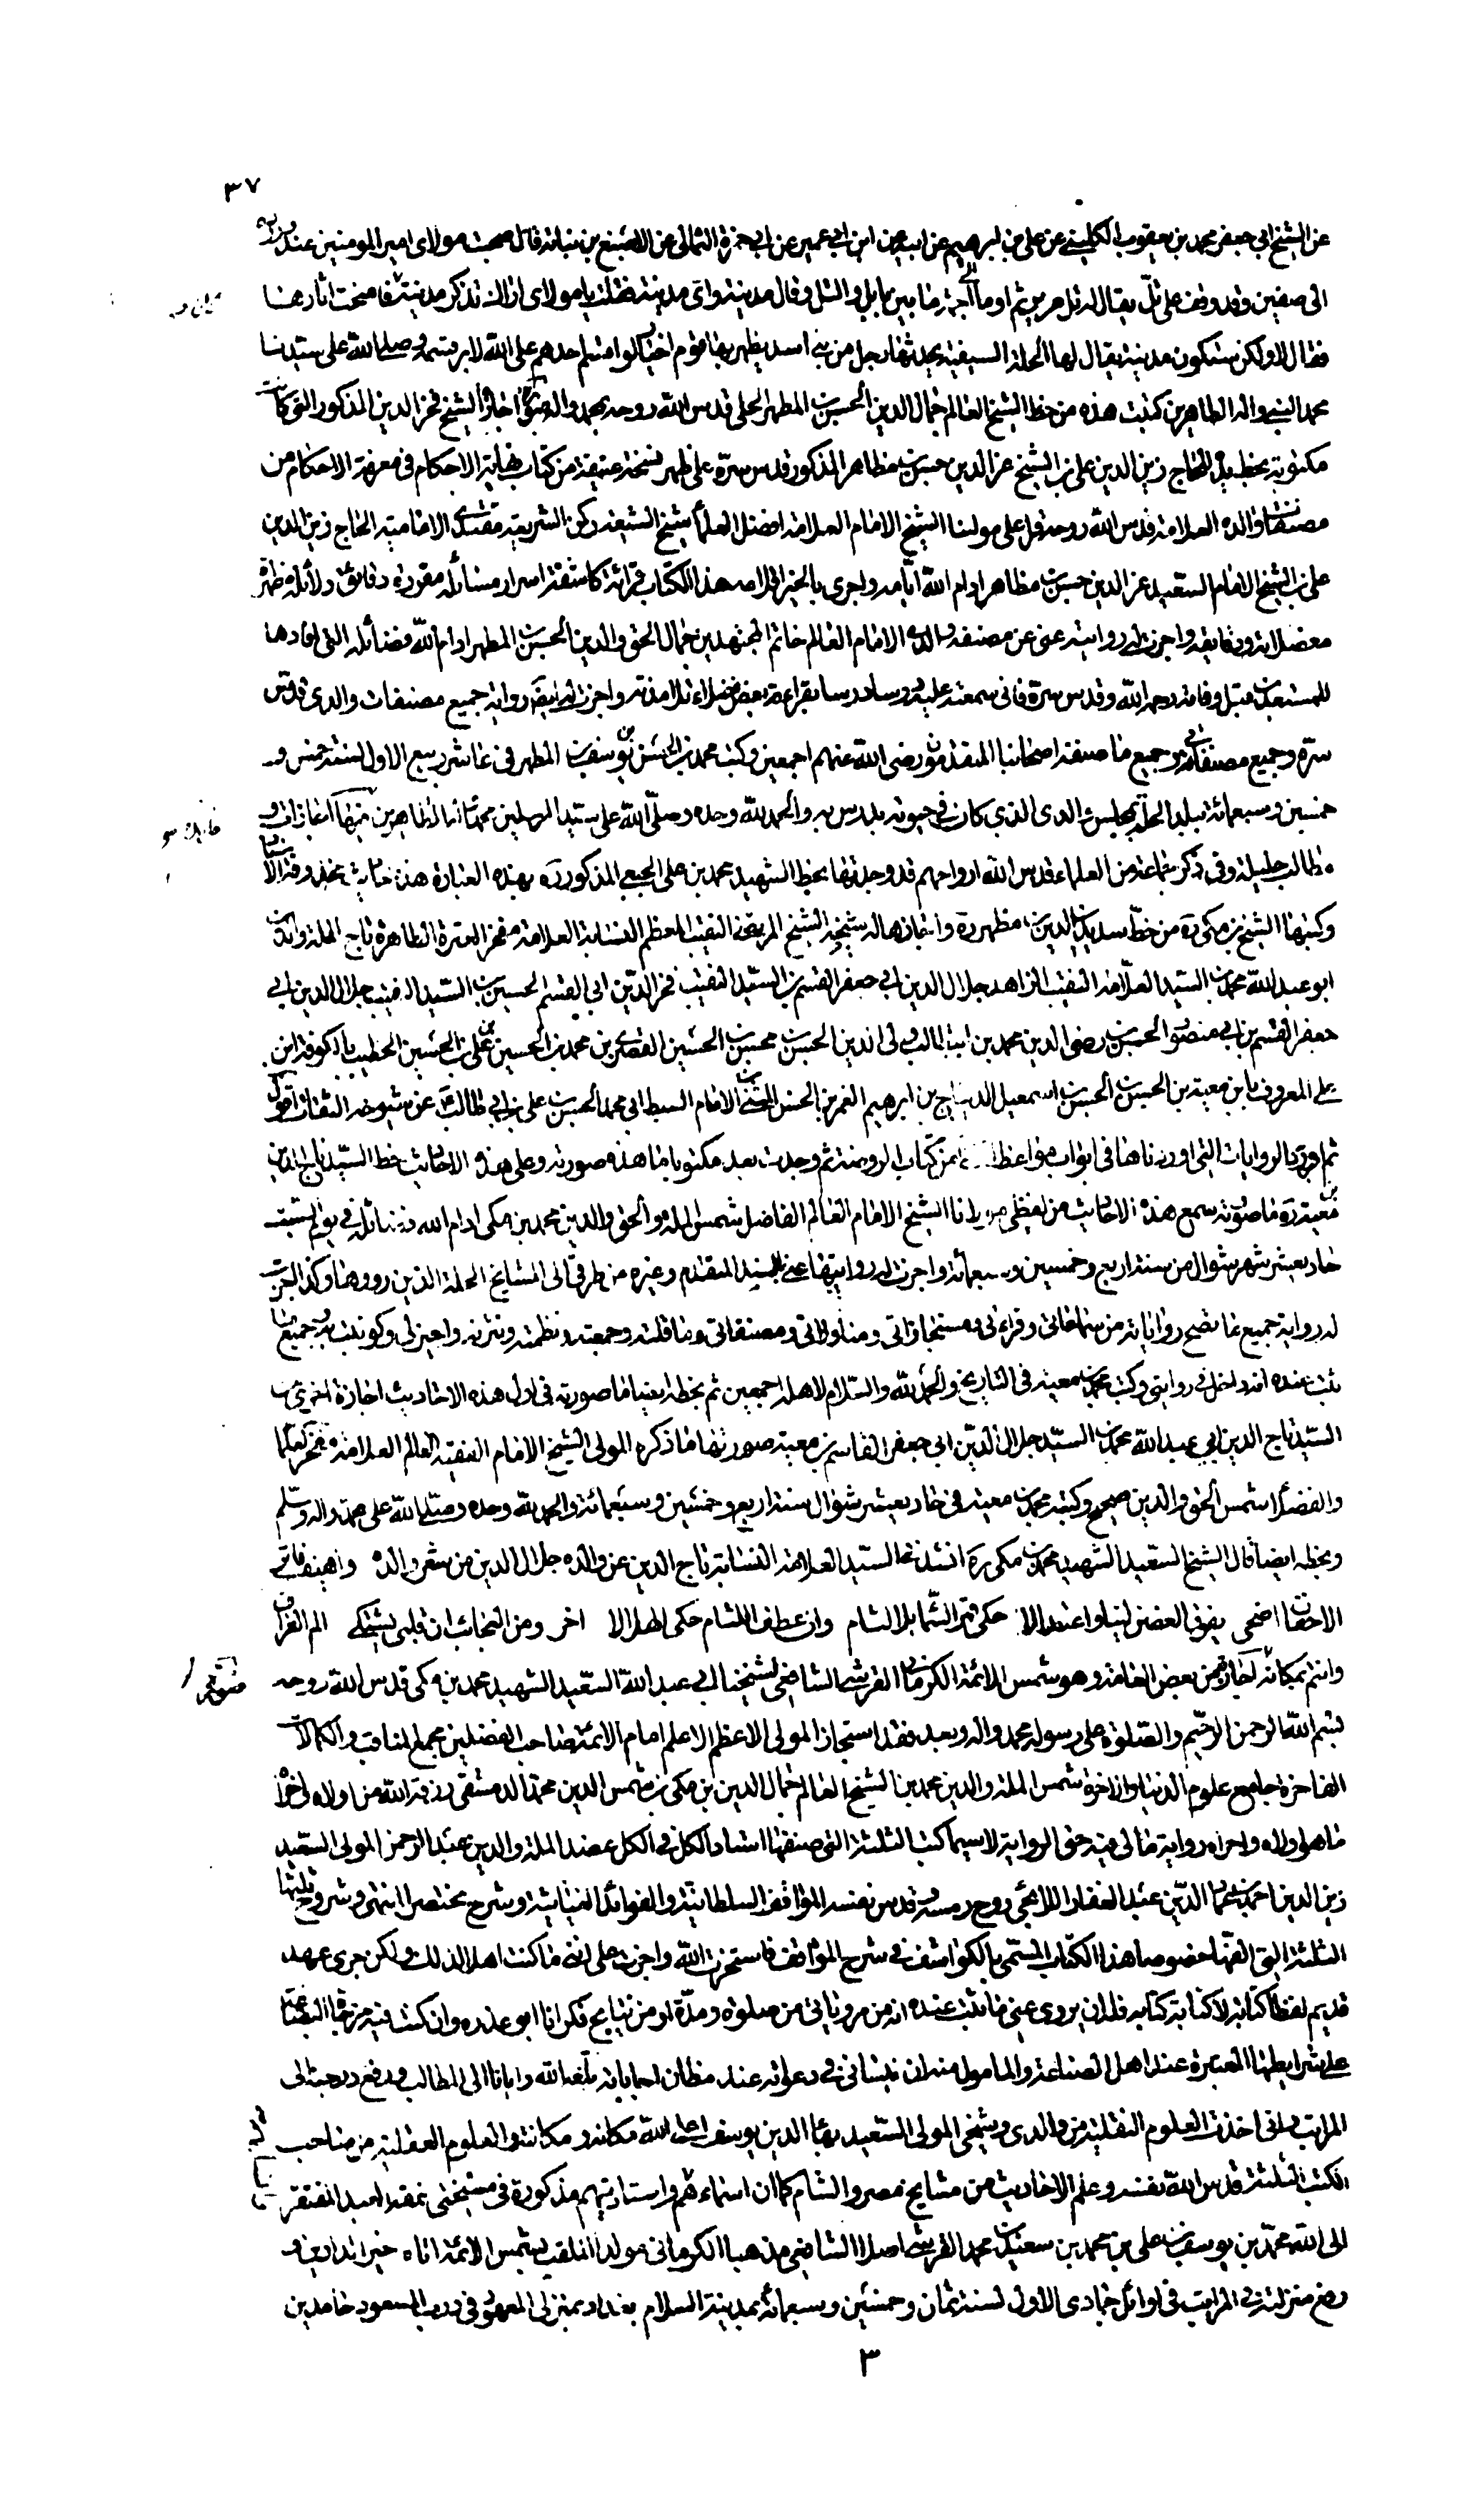 ٣٧
عن الشيخ ابي جعفر محمد بن يعقوب الكليني عن علي بن ابرهيم عن ابيه عن ابن ابي عمير عن ابي حمزة الثمالي عن الاصبغ بن نباتة قال صحبت مولاى امير المومنين عند
الى صفين وقد وقف على تلّ يقال له تل عرير ثم اوما الى اجمة ما بين بابل والتل وقال مدينة واى مدينة فقلت يا مولاى اراك تذكر مدينة فامتحت اثارها
فقال لا ولكن ستكون مدينة يقال لها الحلة السيفية يحدثها رجل من بني اسد يظهر بها قوم اخيار لو اقسم احدهم على الله لابر قسمه وصلى الله على سيدنا
محمد النبي واله الطاهرين كتبت هذه من خط الشيخ العالم جمال الدين الحسن بن المطهر الحلي قدس الله روحه بمحمد واله اجازة الشيخ فخر الدين المذكور التي كانت
مكتوبة بخط يده للحاج زين الدين علي بن الشيخ عز الدين حسن بن مظاهر المذكور قدس سرّه على ظهر نسخة عتيقة من كتاب نهاية الاحكام في معرفة الاحكام من
مصنفات والده العلامة قدس الله روحه قرا على مولنا الشيخ الامام العلامة افضل العلماء شيخ الشيعة ركن الشريعة مقتدى الامامية الحاج زين الدين
علي بن الشيخ الامام السعيد عز الدين حسن بن مظاهر ادام الله ايامه واجرى بالخير اقلامه هذا الكتاب قرائة كاشفة اسرار مسائله مقررة دقايق دلائله
معضلاته واجزت له روايته عني عن مصنفه والدى الامام العالم خاتم المجتهدين جمال الحق والدين الحسن بن المطهر ادام الله فضائله التي افادها
للمستفيدين قبل وفاته رحمه الله وقدس سرّه فاني سمعته عليه درسا درسا بقراءة بعض فضلاء تلامذته واجزت له ايضا رواية جميع مصنفات والدى قدس
سرّه وجميع مصنفاتى وجميع ما صنفه اصحابنا المتقدمون رضى الله عنهم اجمعين وكتب محمد بن الحسن بن يوسف بن المطهر في عاشر ربيع الاول لسنة خمس و
خمسين وسبعمائة ببلد الحلة بمجلس والدى الذي كان في حيوته يدرس به والحمد لله وحده وصلى الله على سيد المرسلين محمد واله الطاهرين
مطالب جليلة وفي ذكر جماعة من العلماء قدس الله ارواحهم قد وجدتها بخط الشهيد محمد بن علي الجبعي المذكور ره بهذه العبارة هذه
وكتبها الشيخ بن مكي ره من خط سديد الدين بن مطهر ره واجازها له شيخه الشيخ المرتضى النقيب المعظم النسابة العلامة مفخر العترة الطاهرة تاج الملة والدين
ابو عبد الله محمد بن السيد العلامة النقيب الزاهد جلال الدين ابي جعفر القسم بن السيد النقيب فخر الدين ابي القسم الحسين بن السيد النقيب جلال الدين ابي
جعفر القسم بن ابي منصور الحسن بن رضى الدين محمد بن ابيطالب ولي الدين الحسن بن محسن بن الحسين القصري بن محمد بن الحسين بن علي بن الحسين الخطيب بالكوفة ابن
علي المعروف بابن معية بن الحسن بن الحسن بن اسمعيل الديباج بن ابرهيم الغمر بن الحسن المثنى بن الامام السبط ابي محمد الحسن بن علي بن ابي طالب عن شيوخه الثقات اقول
ثم اورد الروايات التي اوردناها في ابواب مواعظ من كتاب الروضة ثم وجدت بعد مكتوبا ما هذه صورته وعلى هذه الاحاديث خط السيد تاج الدين
بن معية ره ما صورته سمع هذه الاحاديث من لفظي مولانا الشيخ الامام العالم الفاضل شمس الملة والحق والدين محمد بن مكي ادام الله فضائله في يوم السبت
حاديعشر شهر شوال من سنة اربع وخمسين وسبعمائة واجزت له روايتها عني بالسند المتقدم وغيره من طرقي الى المشايخ الجلة الذين رووها وكذا اجزت
له رواية جميع ما تصح رواياته من سماعاتى وقراءتى ومستجازاتى ومناولاتى ومصنفاتى وما قلته وجمعته ونظمته ونثرته واجيز لي وكوتبت به وجميع ما
ثبت عنده انه داخل في روايتى وكتب محمد بن معية في التاريخ والحمد لله والسلام لاهله اجمعين ثم بخطه ايضا ما صورته في اول هذه الاحاديث اجازة اخرى من
السيد تاج الدين ابي عبد الله محمد بن السيد جلال الدين ابي جعفر القاسم بن معية صورتها ما ذكره المولى الشيخ الامام الفقيه العالم العلامة فخر العلماء
والفضلا شمس الحق والدين صحيح وكتبه محمد بن معية في حاديعشر شوال سنة اربع وخمسين وسبعمائة والحمد لله وحده وصلى الله على محمد واله وسلم
وبخطه ايضا قال الشيخ السعيد الشهيد محمد بن مكى ره انشدنا السيد العلامة النسابة تاج الدين عن والده جلال الدين من شعر والده واهيف فاتر
الاحفان اضحى يفوق الغصن لينا واعتدالا حكى قمر السّما بلا لثام وان عطف اللثام حكى الهلالا اخر ومن العجائب ان قلبي يشتكى الم الفراق
وانتم بمكانه اجازة من بعض العامة وهو شمس الائمة الكرمانى القرشي الشافعي لشيخنا ابي عبد الله السعيد الشهيد محمد بن مكى قدس الله روحه
بسم الله الرحمن الرحيم والصلوة على رسوله محمد واله وبعد فقد استجاز المولى الاعظم الاعلم امام الائمة صاحب الفضلين مجمع المناقب والكمالات
الفاخرة جامع علوم الدنيا والاخرة شمس الملة والدين محمد بن الشيخ العالم جمال الدين بن مكى بن شمس الدين محمد الدمشقى رزقه الله من اولاه واخراه
ما هو اولاه واحراه رواية ما لي فيه حق الرواية لاسيما كتب الثلثة التي صنفها استاد الكل في الكل عضد الملة والدين عبد الرحمن المولى السعيد
زين الدين احمد بن عماد الدين عبد الغفار الايجى روح رمسه وقدس نفسه المواقف السلطانية والفوائد الغياثية وشرح مختصر المنتهى وشروحها
الثلثة التي الفتها خصوصا هذا الكتاب المسمى بالكواشف في شرح المواقف فاستخرت الله واجزت على اننى ما كنت اهلا لذلك ولكن جرى عهد
قديم لفظا كتابة لا كتابة كتابه فله ان يروى عني ما ثبت عنده انه من مروياتى من صلوة ومدّة او من نتايج فكرى انا ابو عذره وان كنت فيه مزجاة البضاعة
على شرايطها المعتبرة عند اهل الصناعة والمامول منه ان لا ينسانى في دعواته عند مظان اجاباته بلغه الله وايانا الى المطالب ورفع درجته الى
المراتب وانى اخذت العلوم النقلية من والدى وشيخى المولى السعيد بهاء الدين يوسف اعلى الله مكانه ومكانته والعلوم العقلية من صاحب
الكتب الثلثة قدس الله نفسه وعلم الاحاديث من مشايخ مصر والشام كما ان اسماءهم واستاديتهم مذكورة في مشيختى نمقه العبد المفتقر
الى الله محمد بن يوسف بن علي بن محمد بن سعيد بن محمد القرشى اصلا الشافعي مذهبا الكرمانى مولدا الملقب بشمس الائمة اتاه خير الدارين و
رفع منزلته في المراتب في اوائل جمادى الاولى لسنة ثمان وخمسين وسبعمائة بمدينة السلام بغداد بمنزلى المعمور في درب المسعود حامدين
٣